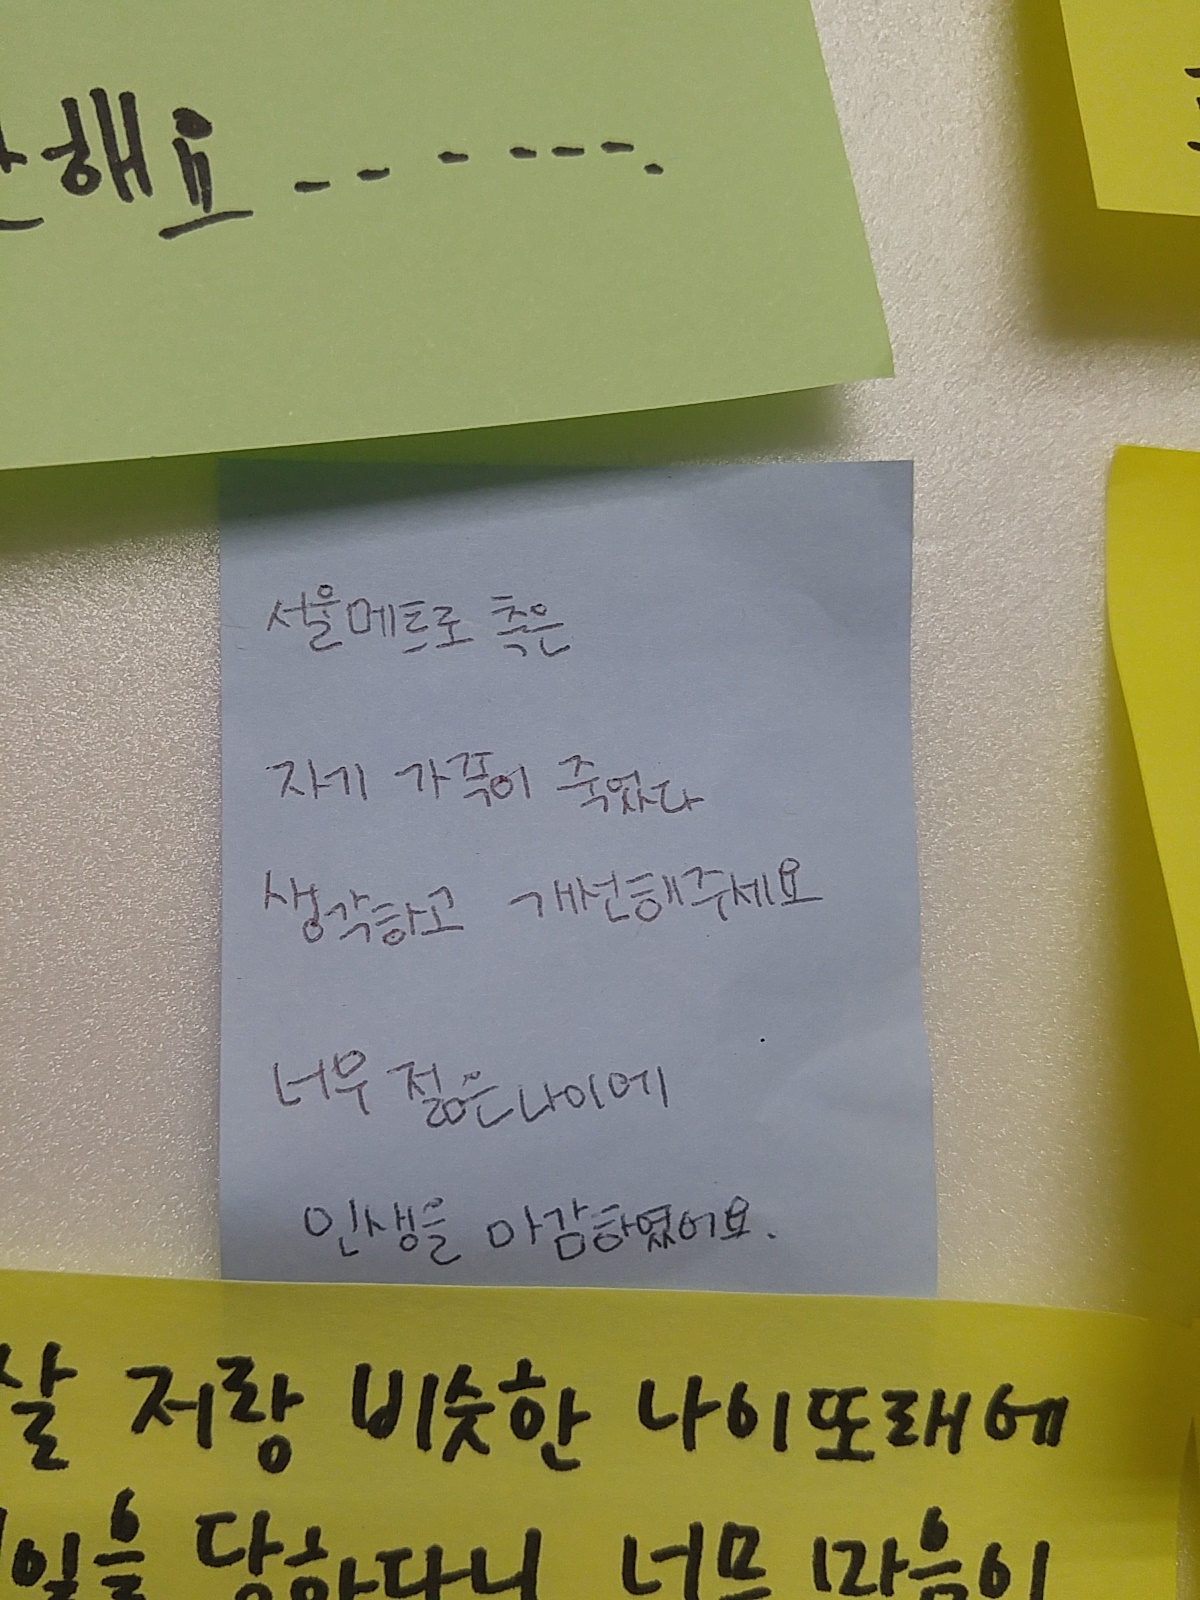 해요 -- - ---.
서울메트로 측은
자기 가족이 죽었다
생각하고 개선해주세요
너무 젊은나이에
인생을 마감하였어요.
살 저랑 비슷한 나이또래에
일을 당하다니 너무 마음이